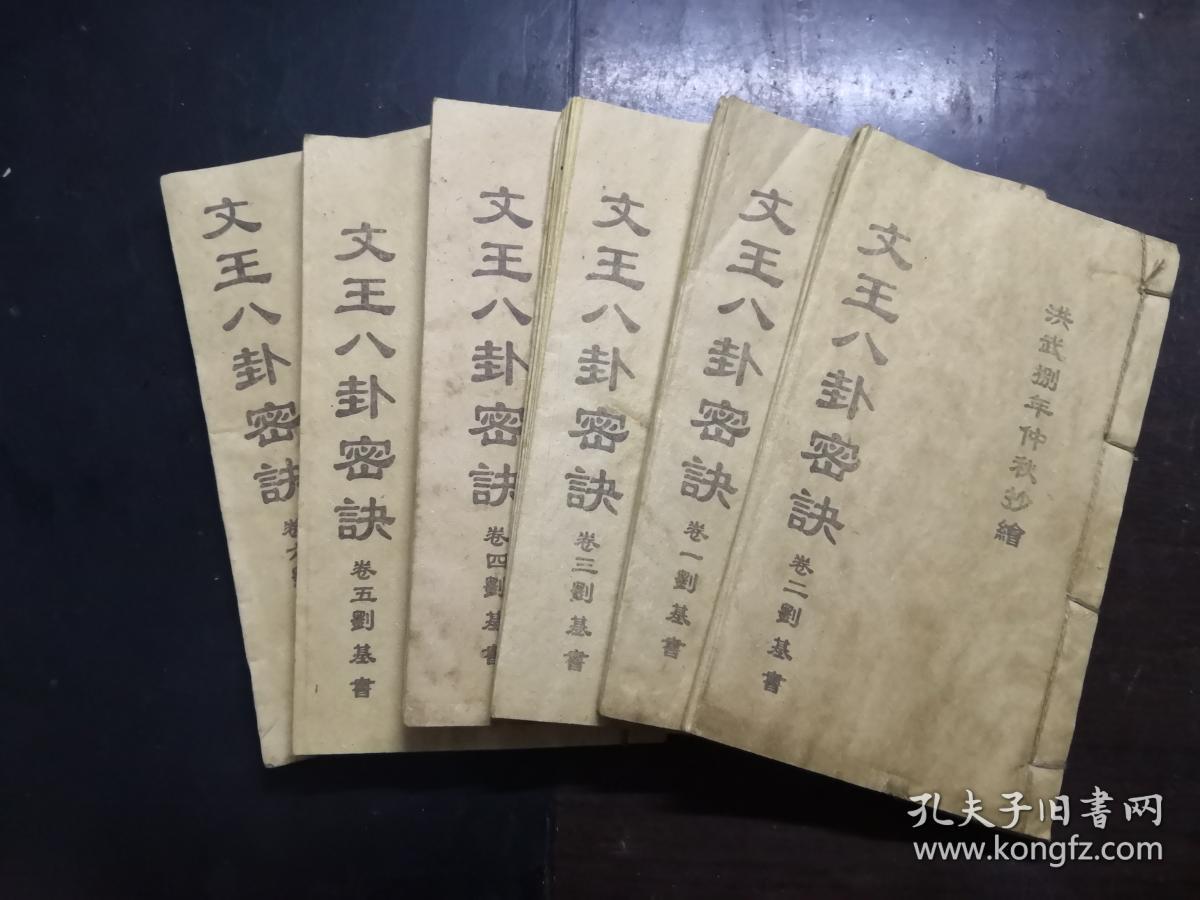 洪武捌年仲秋抄繪
文王八卦密訣 卷二劉基書
文王八卦密訣 卷一劉基書
文王八卦密訣 卷三劉基書
文王八卦密訣 卷四劉基書
文王八卦密訣 卷五劉基書
文王八卦密訣 卷六劉
孔夫子旧书网
www.kongfz.com